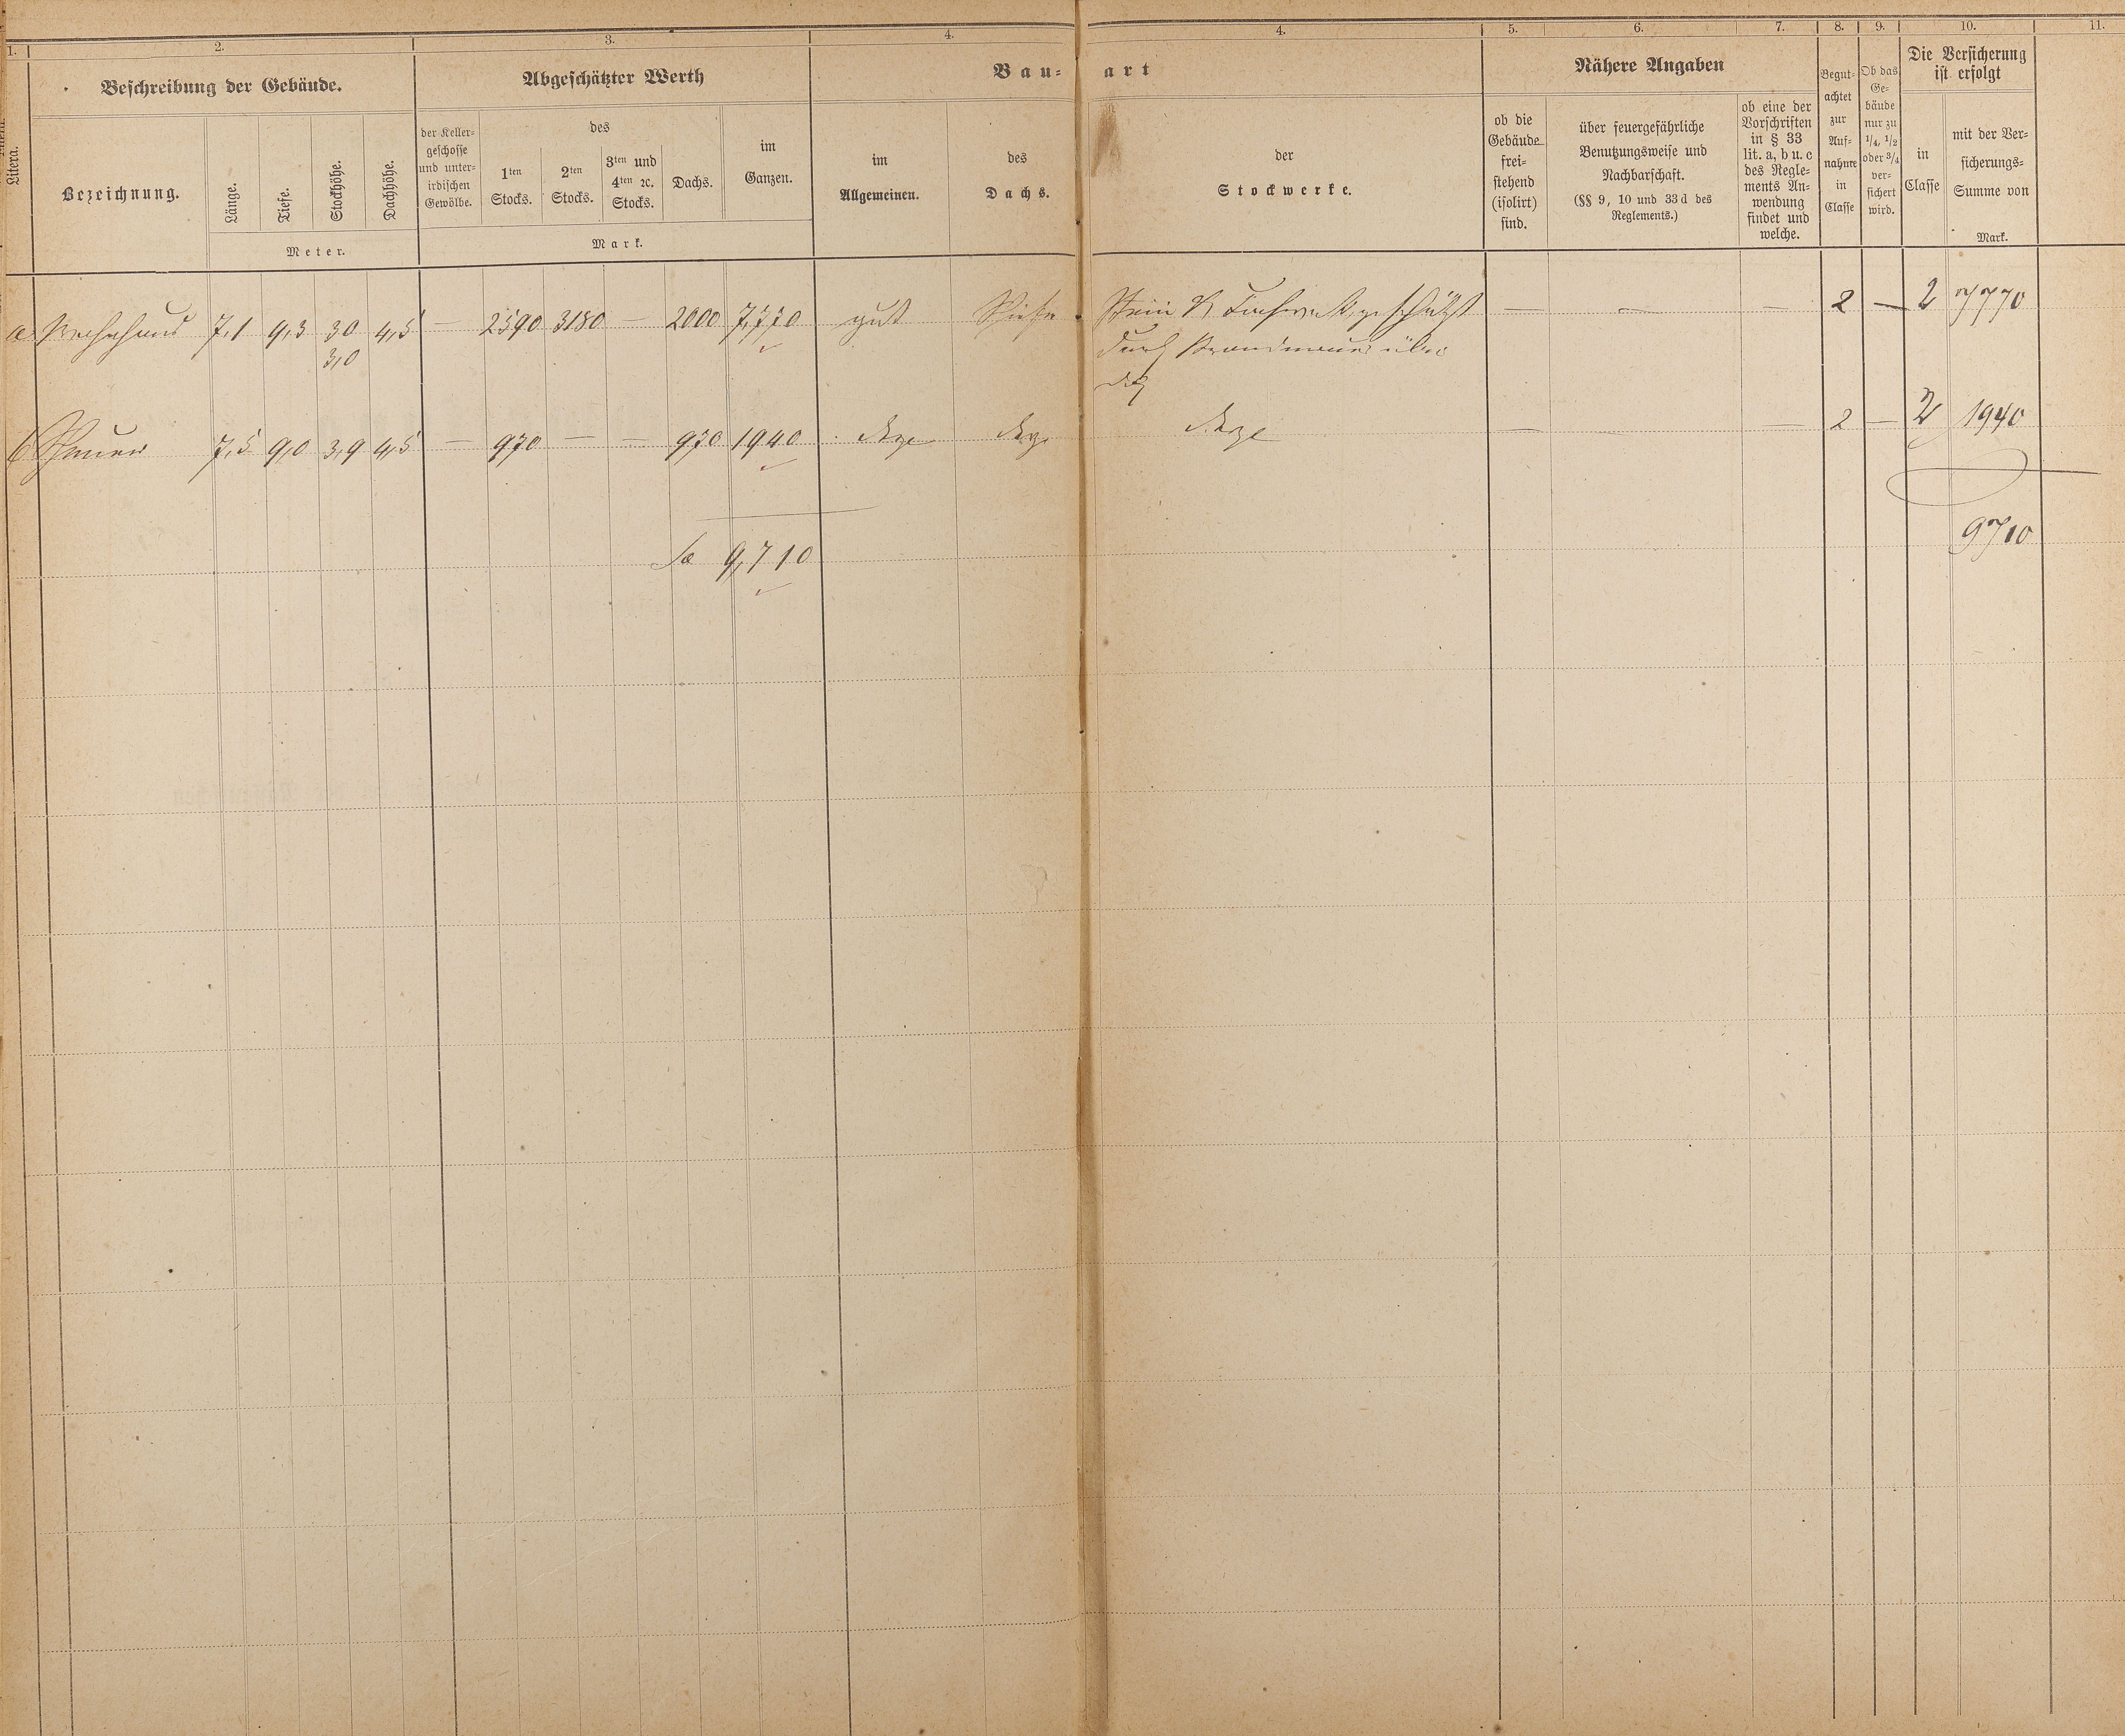 1. 2. 3. 4. 4. 5. 6. 7. 8. 9. 10. 11.
Litera.
Beschreibung der Gebäude.
Bezeichnung.
Länge.
Tiefe.
Stockhöhe.
Dachhöhe.
Meter.
Abgeschätzter Werth
der Keller-
geschosse
und unter-
irdischen
Gewölbe.
des
1ten
Stocks.
2ten
Stocks.
3ten und
4ten ꝛc.
Stocks.
Dachs.
im
Ganzen.
Mark.
Bau- art
im
Allgemeinen.
des
Dachs.
der
Stockwerke.
Nähere Angaben
ob die
Gebäude
frei-
stehend
(isolirt)
sind.
über feuergefährliche
Benutzungsweise und
Nachbarschaft.
(§§ 9, 10 und 33 d des
Reglements.)
ob eine der
Vorschriften
in § 33
lit. a, b u. c
des Regle-
ments An-
wendung
findet und
welche.
Begut-
achtet
zur
Auf-
nahme
in
Classe
Ob das
Ge-
bäude
nur zu
1/4, 1/2
oder 3/4
ver-
sichert
wird.
Die Versicherung
ist erfolgt
in
Classe
mit der Ver-
sicherungs-
Summe von
Mark.
a Wohnhaus 7,1 9,3 30 4,5 — 2590 3180 — 2000 7,770 gut Stein & Fachwerk geschützt — — — 2 — 2 7770
3,0 durch Brandmauer
b Scheuer 7,5 9,0 3,9 4,5 — 970 — — 970 1940 dsgl dsgl dsgl — — — 2 — 2 1940
Sa 9,710 9710